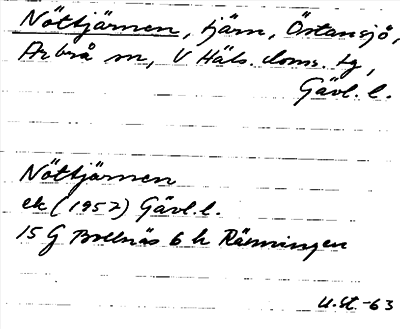 Nöttjärnen, tjärn, Östansjö,
Arbrå sn, V Häls. doms. tg,
Gävl. l.
Nöttjärnen
ek (1957) Gävl. l.
15 G Bollnäs 6 h Rämningen
U.St. -63